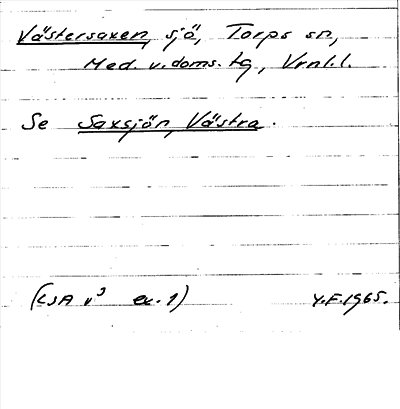 Västersaxen, sjö, Torps sn,
Med. v. doms. tg, Vrnl.l.
Se Saxsjön, Västra.
(LSA v³ ex. 1) Y.F. 1965.